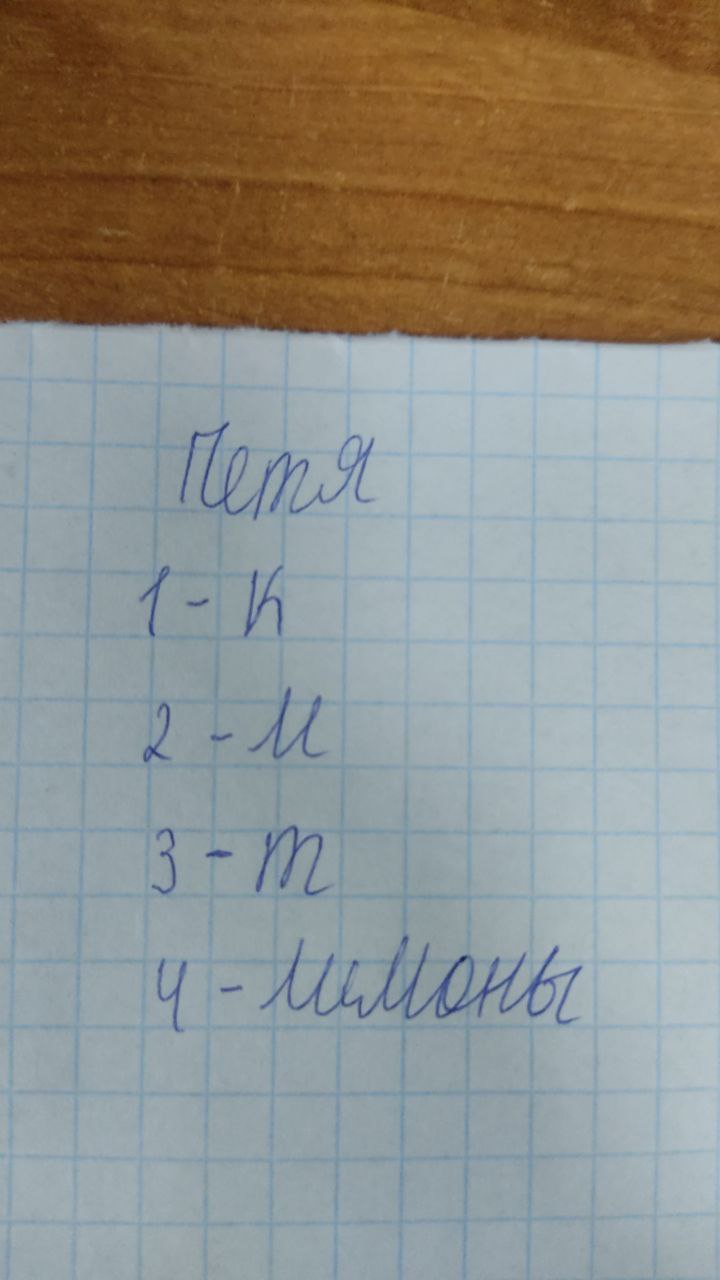 Петя
1 - К
2 - М
3 - т
4 - лимоны